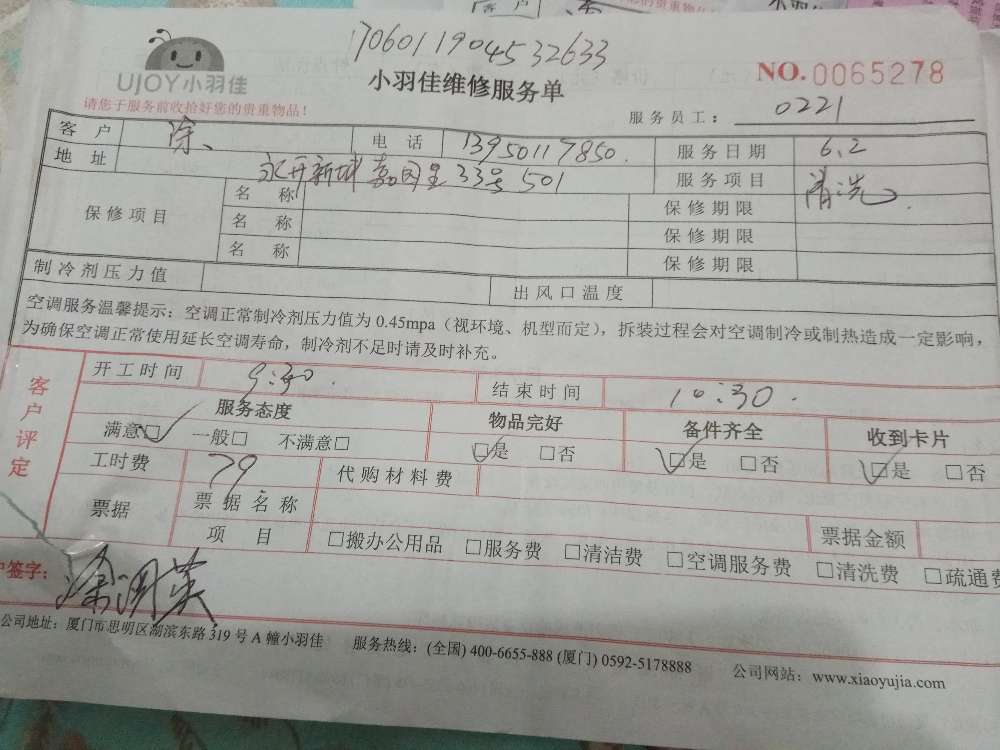 1706011904532633
UJOY小羽佳
小羽佳维修服务单
NO.0065278
请您于服务前收拾好您的贵重物品!
服务员工: 0221
客户 涂、 电话 13950117850. 服务日期 6.2
地址 33号501 服务项目 清洗.
保修项目 名称 保修期限
名称 保修期限
名称 保修期限
制冷剂压力值 出风口温度
空调服务温馨提示：空调正常制冷剂压力值为 0.45mpa（视环境、机型而定），拆装过程会对空调制冷或制热造成一定影响，
为确保空调正常使用延长空调寿命，制冷剂不足时请及时补充。
客户评定
开工时间 9:30. 结束时间 10:30.
服务态度 物品完好 备件齐全 收到卡片
满意□ 一般□ 不满意□ □是 □否 □是 □否 □是 □否
工时费 79. 代购材料费
票据 票据名称 票据金额
项目 □搬办公用品 □服务费 □清洁费 □空调服务费 □清洗费 □疏通费
户签字：
公司地址：厦门市思明区湖滨东路 319 号 A 幢小羽佳 服务热线：(全国) 400-6655-888 (厦门) 0592-5178888 公司网站：www.xiaoyujia.com